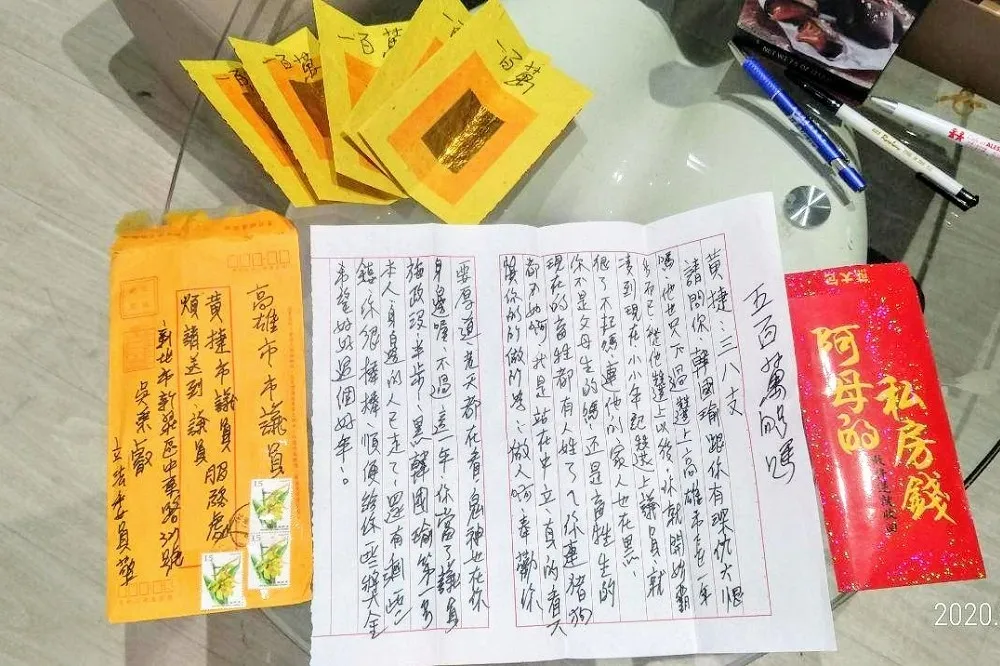 一百萬
一百萬
一百萬
一百萬
NET WT 7.5 OZ
高雄市市議員
黃捷市議員服務處
煩請送到議員
新北市新莊區中華路
吳秉叡
立法委員
15
15
15
五百萬夠嗎
黃捷:三八支
請問你,韓國瑜跟你有深仇大恨
嗎他也只不過選上高雄市市長
而已從他選上以後,你就開始霸
凌到現在小小年紀選上議員就
很了不起嗎連他的家人也在黑,
你不是父母生的嗎還是畜牲生的
現在的畜牲都有人性了你連豬狗
都不如啊我是站在中立,真的看不
慣你的的做所為:做人啊奉勸你
要厚道老天都在看鬼神也在你
身邊喔不過這一年你當了議員
施政沒半步,黑韓國瑜第一名
本人身邊的人已走了,還有剩一些
錢你很棒棒順便給你一些獎金
希望好好過個好年。
阿母的
私房錢
2020.